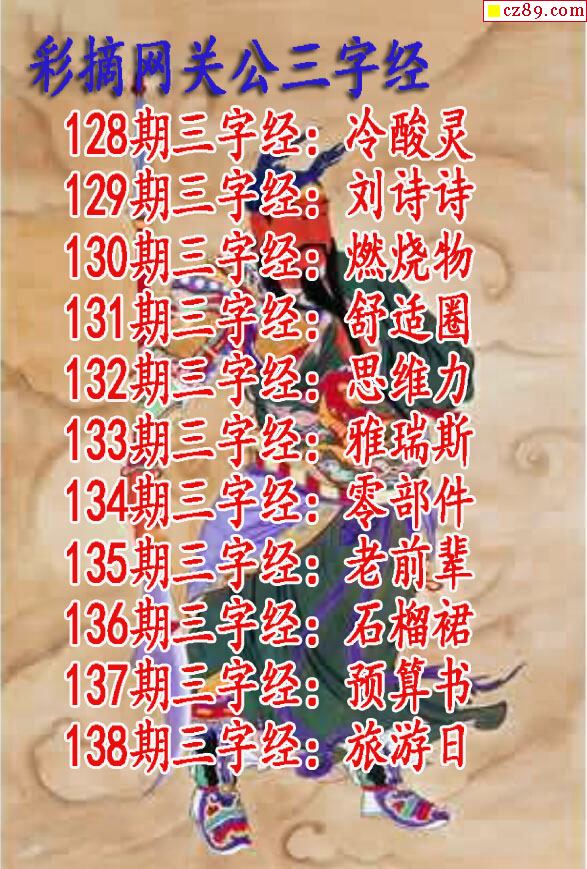 cz89.com
彩摘网关公三字经
128期三字经：冷酸灵
129期三字经：刘诗诗
130期三字经：燃烧物
131期三字经：舒适圈
132期三字经：思维力
133期三字经：雅瑞斯
134期三字经：零部件
135期三字经：老前辈
136期三字经：石榴裙
137期三字经：预算书
138期三字经：旅游日